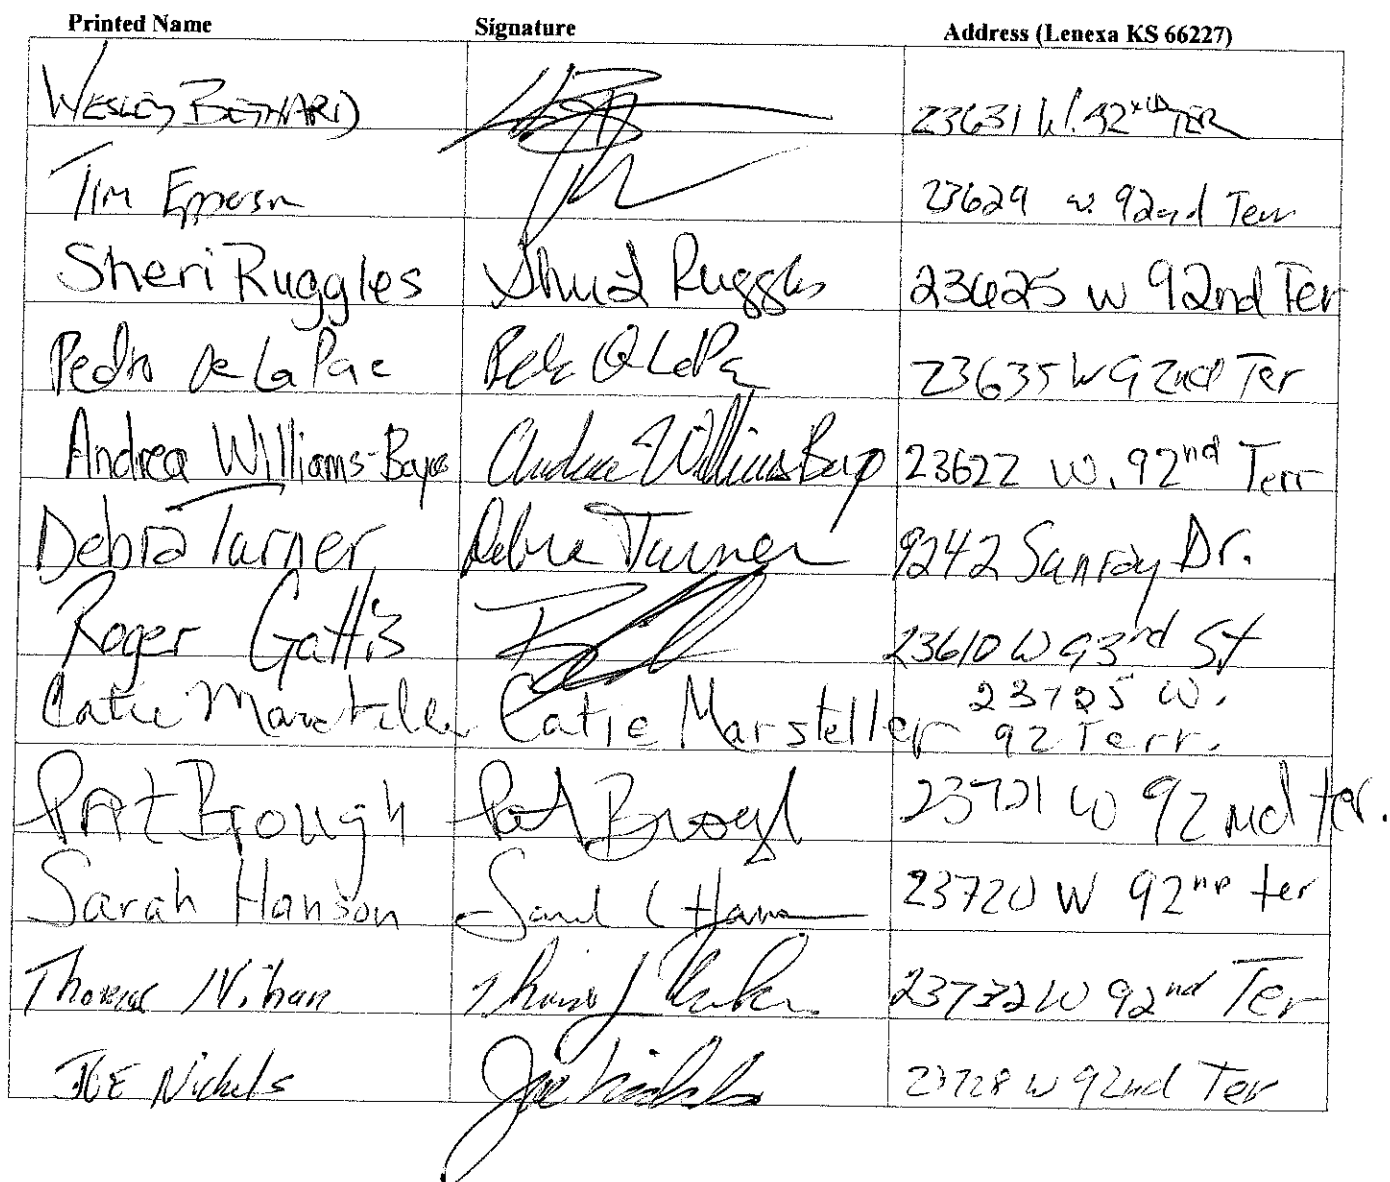 Printed Name Signature Address (Lenexa KS 66227)
WESLEY BETHARD 23631 W. 92ND TER
Tim Epperson 23629 W. 92nd Terr
Sheri Ruggles Sheri L Ruggles 23625 W 92nd Ter
Pedro De La Paz 23635 W 92nd Ter
Andrea Williams-Bayo Andrea Williams Bayo 23622 W. 92nd Terr
Debra Turner Debra Turner 9242 Sunray Dr.
Roger Gattis 23610 W 93rd St
Catie Marsteller Catie Marsteller 23725 W.
92 Terr.
PAt Brough Pat Brough 23721 W 92nd ter.
Sarah Hanson Sarah L Hanson 23720 W 92nd ter
Thomas Nihan 23732 W 92nd Ter
JOE Nickels Joe Nickels 23728 W 92nd Ter